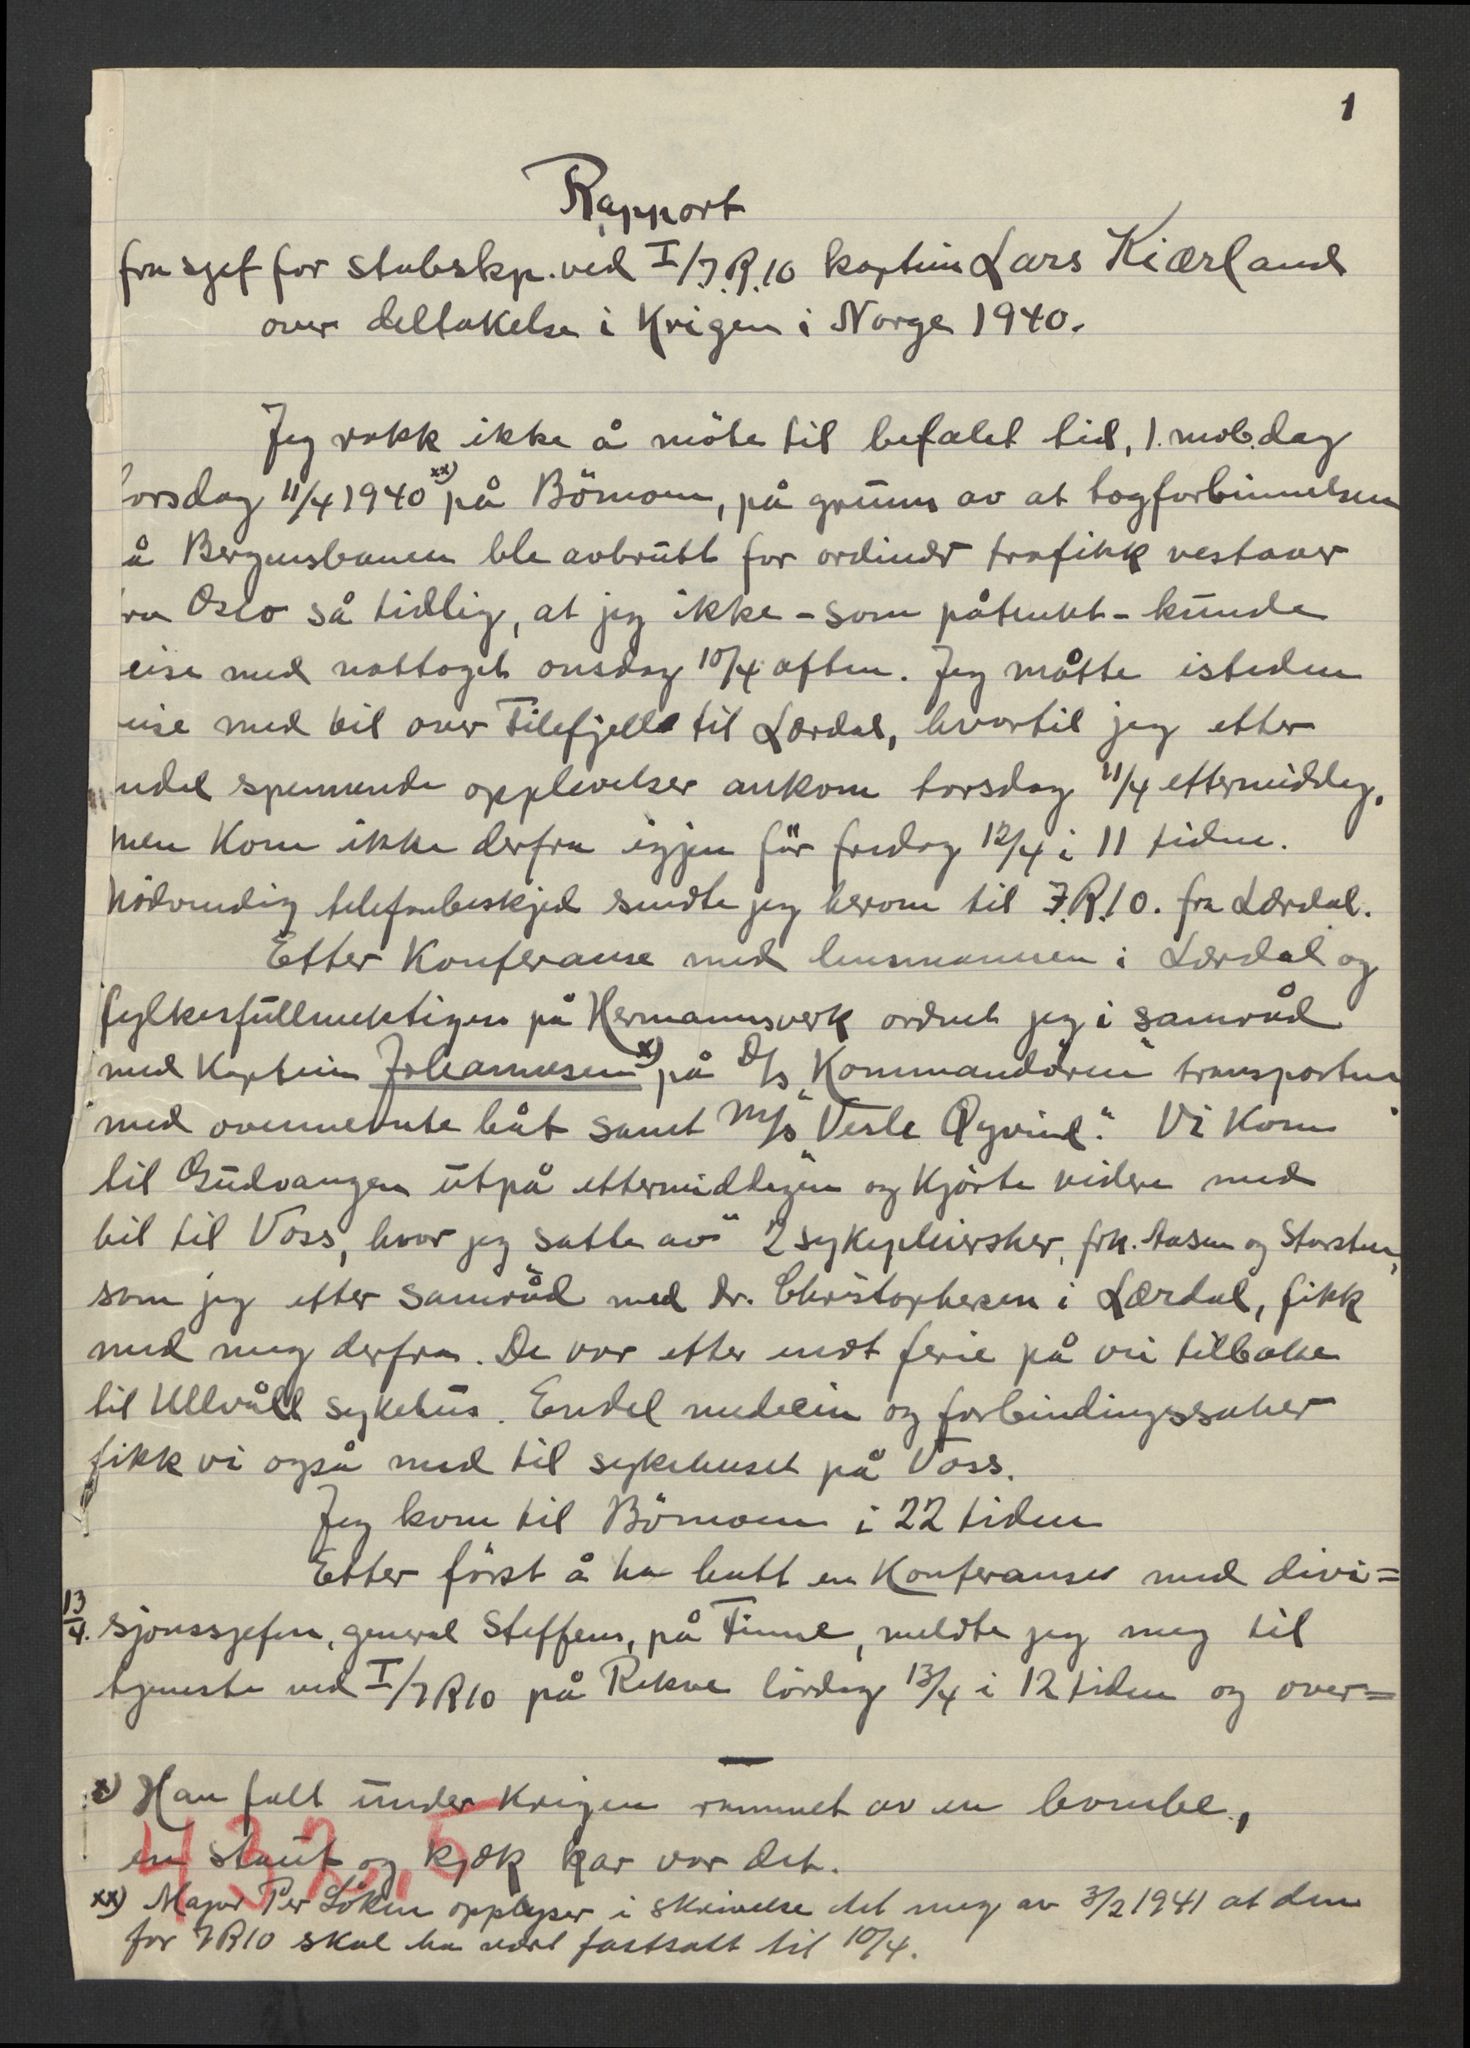 1
Rapport
fra sjef for stabskp. ved I/J.R.10 kaptein Lars Kiærland
over deltakelse i Krigen i Norge 1940.
Jeg rakk ikke å möte til befalet tid, 1. mob.dag
orsdag 11/4 1940 xx) på Bömoen, på grunn av at togforbinnelsen
å Bergensbanen ble avbrutt for ordinær trafikk vestover
ra Oslo så tidlig, at jeg ikke - som påtenkt - kunde
eise med nattoget onsdag 10/4 aften. Jeg måtte isteden
eise med bil over Filefjell til Lærdal, hvortil jeg etter
endel spennende opplevelser ankom torsdag 11/4 ettermiddag,
men kom ikke derfra igjen för fredag 12/4 i 11 tiden.
Nödvendig telefonbeskjed sendte jeg herom til J.R.10. fra Lærdal.
Etter Konferanse med lensmannen i Lærdal og
fylkesfullmektigen på Hermannsverk ordnet jeg i samråd
med Kaptein Johannesen x) på D/S "Kommandören" transporten
med ovennevnte båt samt M/S "Vesle Øyvind". Vi kom
til Gudvangen utpå ettermiddagen og kjörte videre med
bil til Voss, hvor jeg satte av 2 sykepleiersker, frk. Aasen og Storsten,
som jeg etter samråd med dr. Christophersen i Lærdal, fikk
med meg derfra. De var etter endt ferie på vei tilbake
til Ullevåll sykehus. Endel medecin og forbindingssaker
fikk vi også med til sykehuset på Voss.
Jeg kom til Bömoen i 22 tiden
Etter först å ha hatt en Konferanse med divi=
13/4. sjonssjefen, general Steffens, på Finne, meldte jeg meg til
tjeneste ved I/JR10 på Rekve lördag 13/4 i 12 tiden og over=
x) Han falt under Krigen rammet av en bombe,
en staut og kjæk kar var det.
432,5
xx) Major Per Löken opplyser i skrivelse til meg av 3/2 1941 at den
for JR10 skal ha vært fastsatt til 10/4.